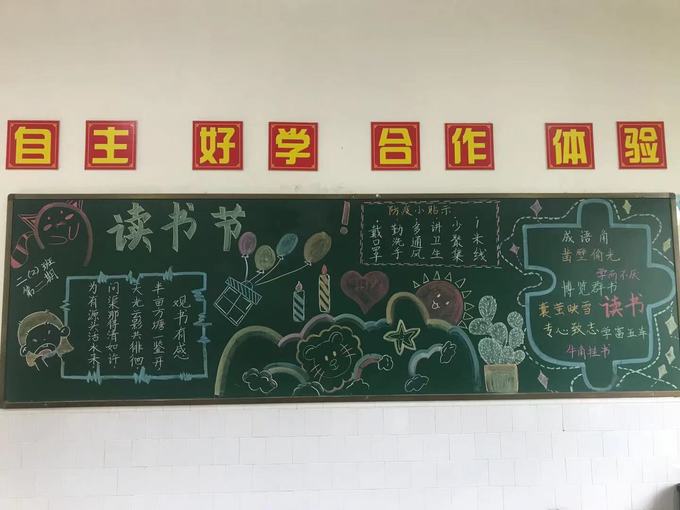 自主 好学 合作 体验
读书节
一(2)班
第二期
观书有感
半亩方塘一鉴开
天光云影共徘徊
问渠那得清如许
为有源头活水来
防疫小贴示
·戴口罩
·勤洗手
·多通风
·讲卫生
·少聚集
·一米线
成语角
凿壁偷光
学而不厌
博览群书
囊萤映雪 读书
专心致志 学富五车
牛角挂书